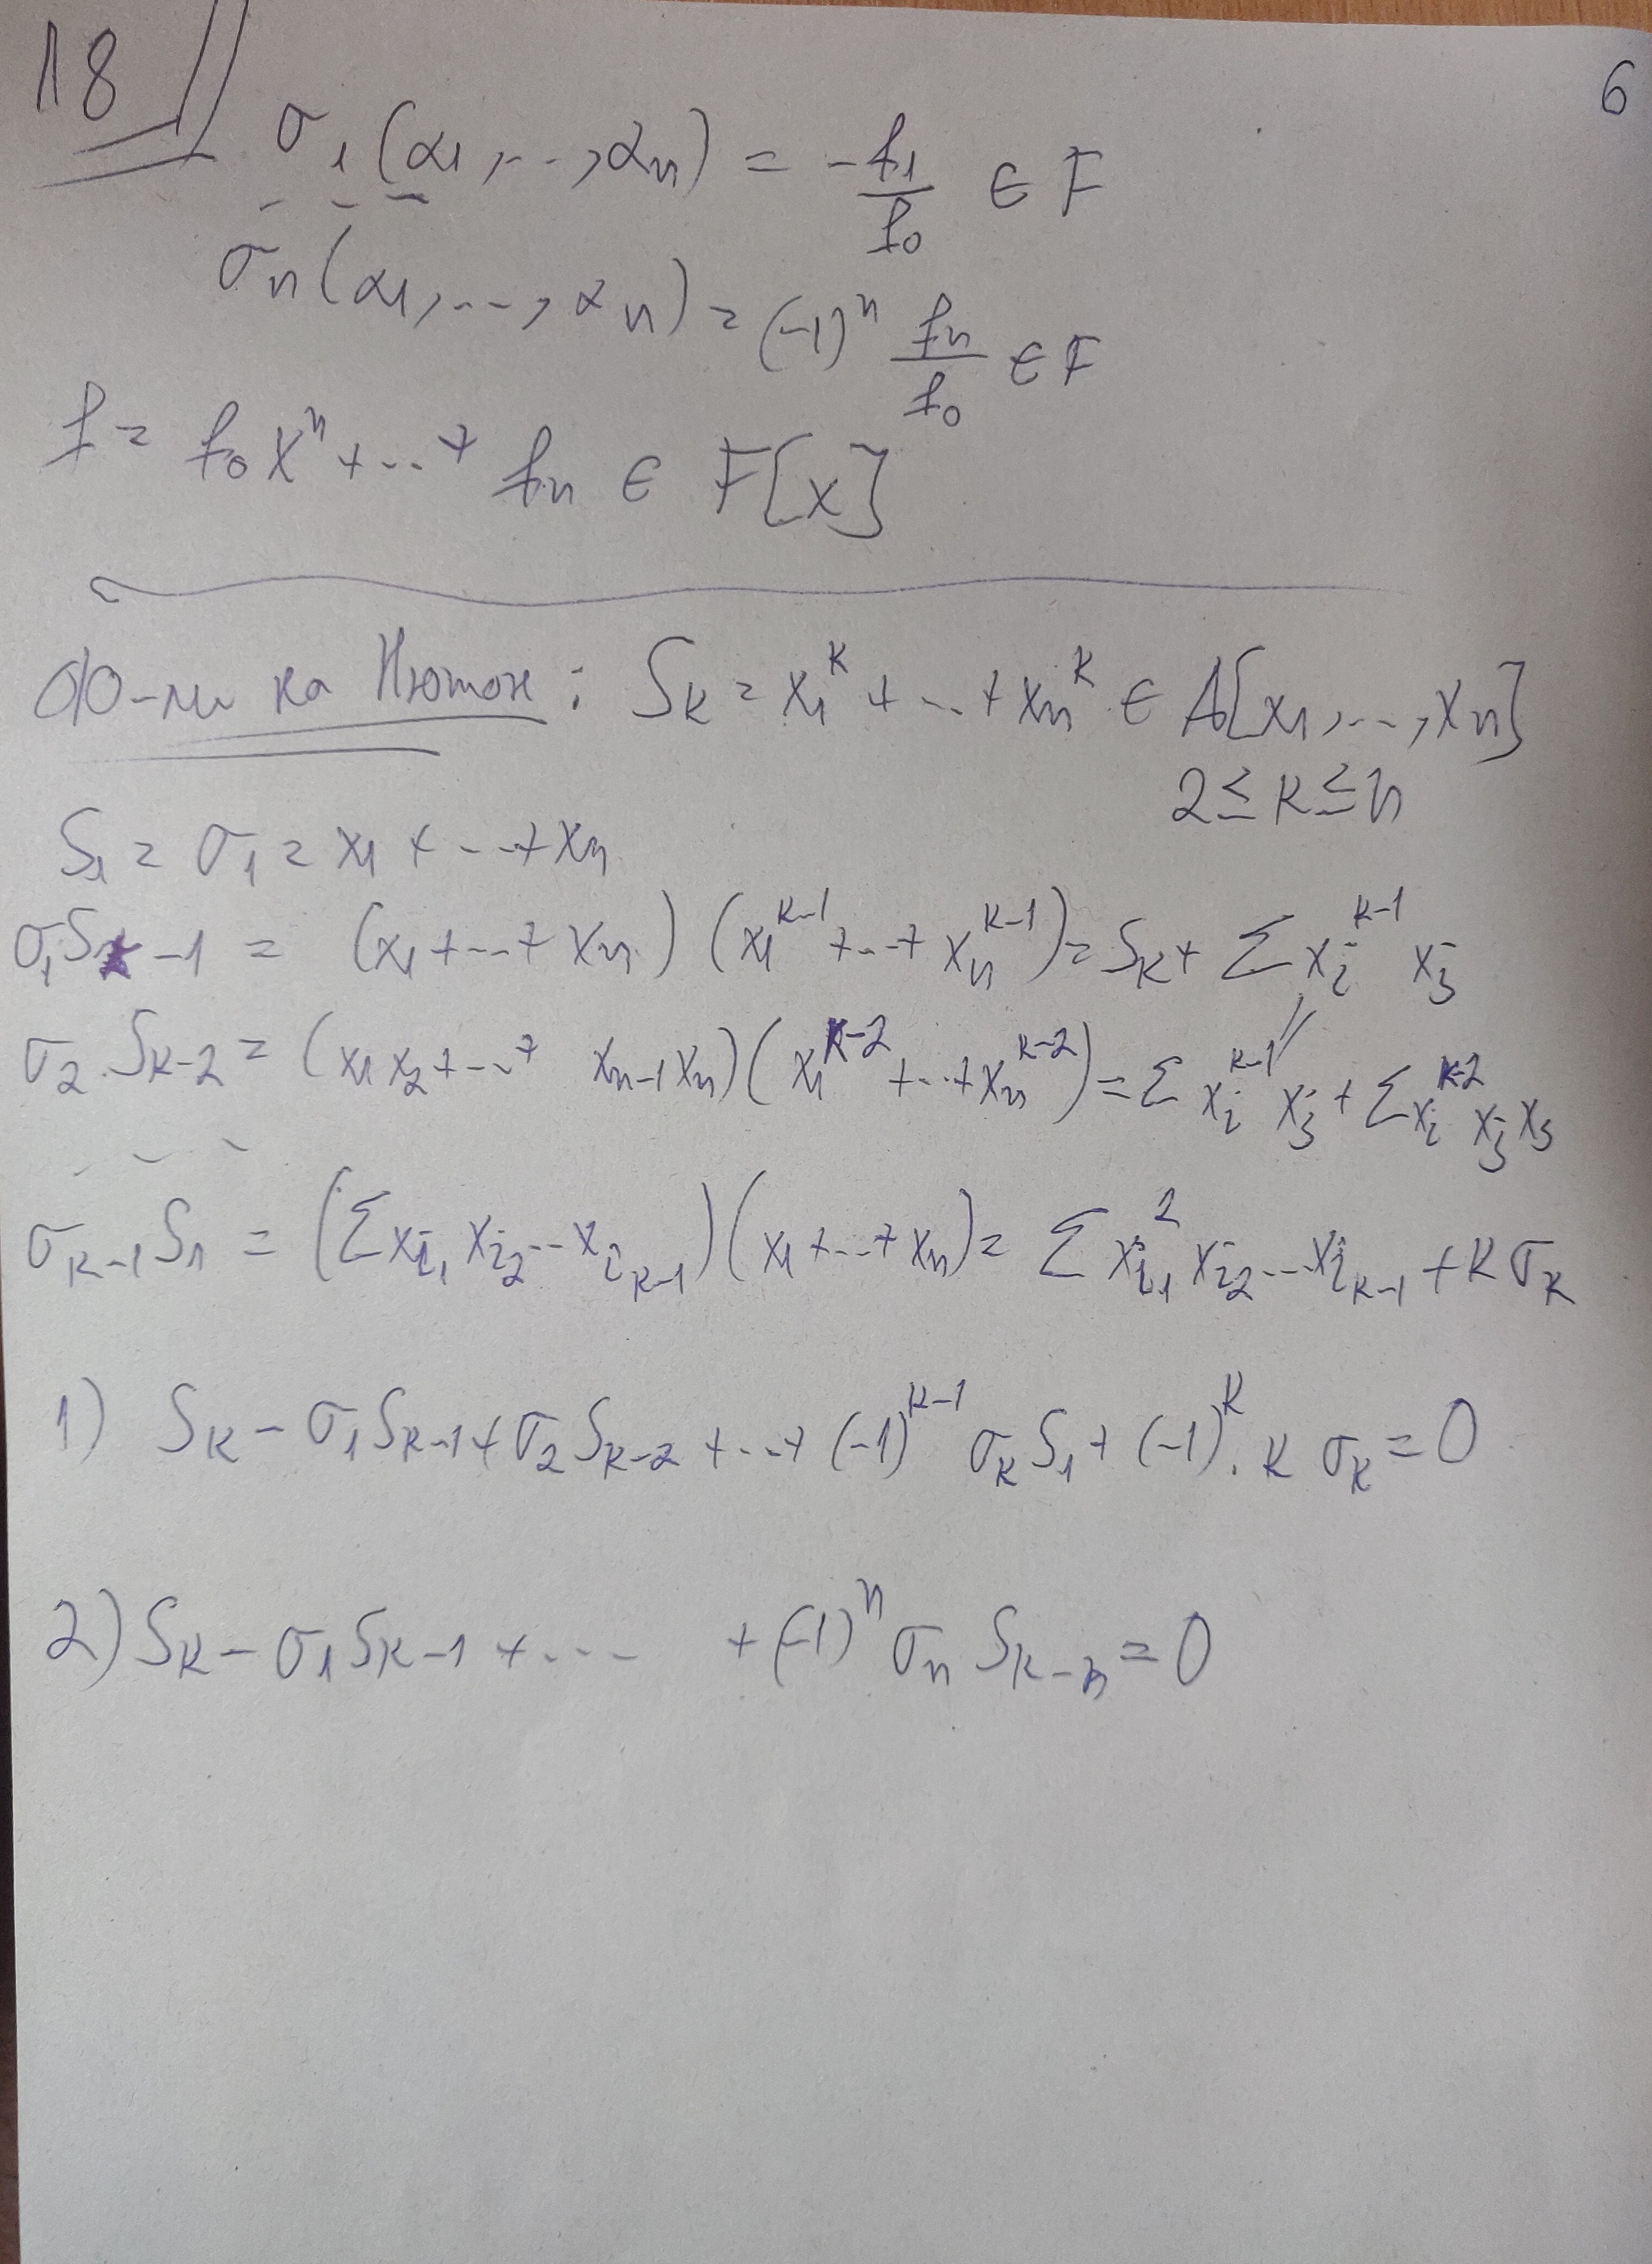 18 6
σ₁(α₁,...,αₙ) = -f₁/f₀ ∈ F
- - -
σₙ(α₁,...,αₙ) = (-1)ⁿ fₙ/f₀ ∈ F
f = f₀xⁿ + ... + fₙ ∈ F[x]
Ф-ли на Нютон: Sₖ = x₁ᵏ + ... + xₙᵏ ∈ A[x₁,...,xₙ]
2 ≤ k ≤ n
S₁ = σ₁ = x₁ + ... + xₙ
σ₁Sₖ₋₁ = (x₁ + ... + xₙ)(x₁ᵏ⁻¹ + ... + xₙᵏ⁻¹) = Sₖ + Σ xᵢᵏ⁻¹ xⱼ
σ₂.Sₖ₋₂ = (x₁x₂ + ... + xₙ₋₁xₙ)(x₁ᵏ⁻² + ... + xₙᵏ⁻²) = Σ xᵢᵏ⁻¹ xⱼ + Σ xᵢᵏ⁻² xⱼ xₛ
- - -
σₖ₋₁S₁ = (Σ x_{i₁} x_{i₂} ... x_{iₖ₋₁})(x₁ + ... + xₙ) = Σ x_{i₁}² x_{i₂} ... x_{iₖ₋₁} + k σₖ
1) Sₖ - σ₁Sₖ₋₁ + σ₂Sₖ₋₂ + ... + (-1)ᵏ⁻¹ σₖ S₁ + (-1)ᵏ. k σₖ = 0
2) Sₖ - σ₁Sₖ₋₁ + .... + (-1)ⁿ σₙ Sₖ₋ₙ = 0